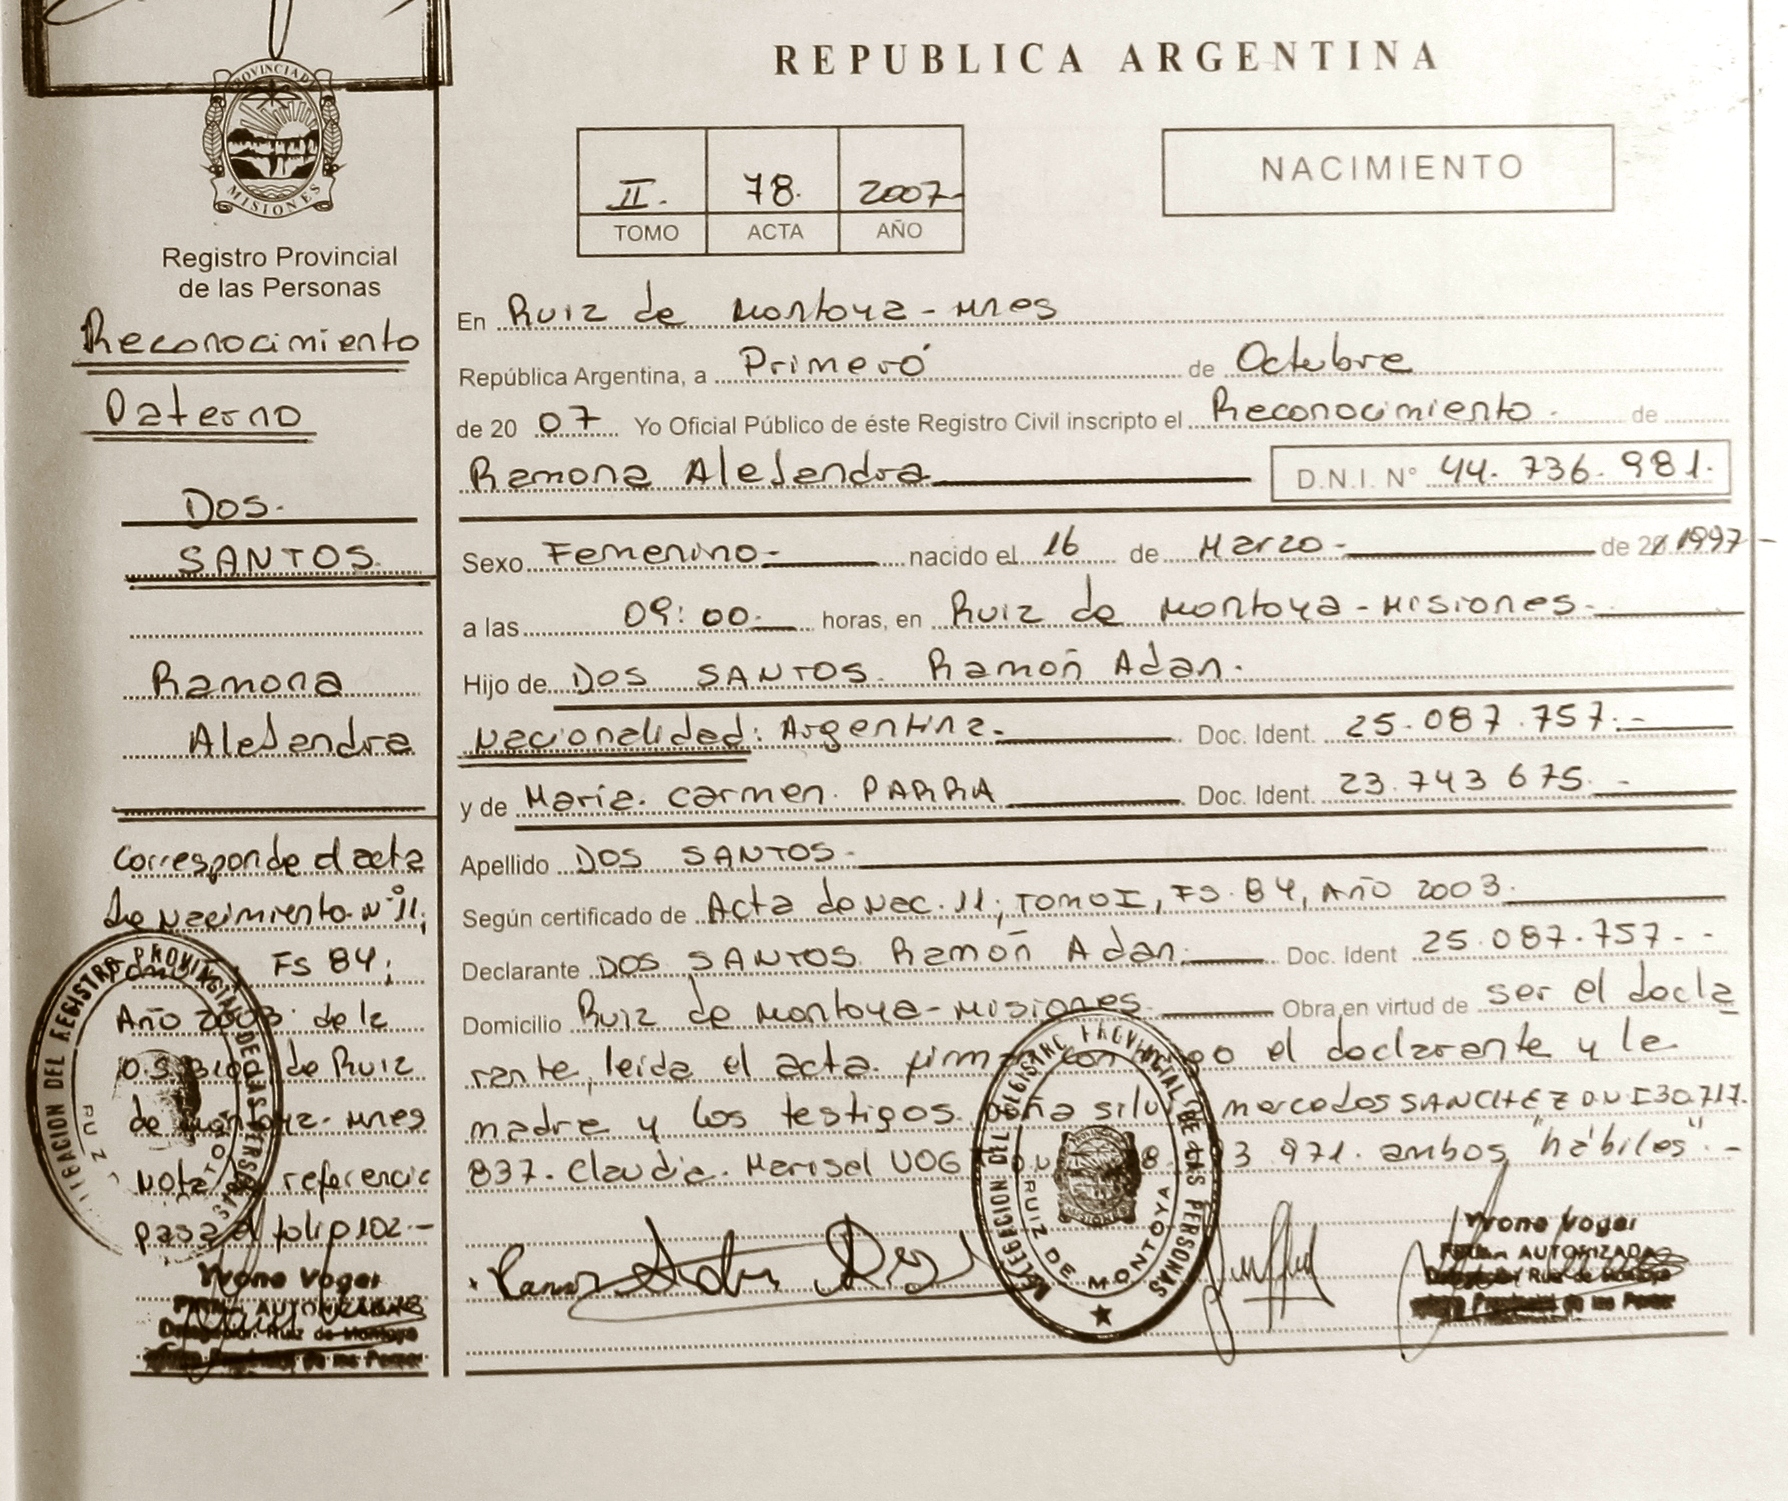 REPUBLICA ARGENTINA
PROVINCIA DE
MISIONES
Registro Provincial
de las Personas
Reconocimiento
Paterno
DOS.
SANTOS.
Ramona
Alejandra
Corresponde al acta
de Nacimiento. N° 11,
FS 84;
Año 2003. de la
de Ruiz
de Montoya - Mnes
Nota referencia
pasa al folio 102.-
Yvone Vogel
FIRMA AUTORIZADA
Delegación Ruiz de Montoya
DELEGACION DEL REGISTRO PROVINCIAL DE LAS PERSONAS
II. 78. 2007-
TOMO ACTA AÑO
NACIMIENTO
En Ruiz de Montoya - Mnes
República Argentina, a Primero de Octubre
de 20 07 Yo Oficial Público de éste Registro Civil inscripto el Reconocimiento. de
Ramona Alejandra D.N.I. N° 44. 736. 981.
Sexo Femenino- nacido el 16 de Marzo- de 1997-
a las 09:00- horas, en Ruiz de Montoya - Misiones-
Hijo de DOS SANTOS. Ramón Adan.
Nacionalidad: Argentina. Doc. Ident. 25.087.757.-
y de María. Carmen. PARRA Doc. Ident. 23.743 675. -
Apellido DOS SANTOS-
Según certificado de Acta de Nac. 11; TOMO I, FS. 84, Año 2003.
Declarante DOS SANTOS Ramón Adan. Doc. Ident 25.087.757- -
Domicilio Ruiz de Montoya - Misiones. Obra en virtud de ser el decla
rante, leída el acta. firma con el declarante y la
madre y los testigos. Mercedes SANCHEZ D N I 30.717.
837. Claudia. Marisel VOG 3 971. ambos "hábiles".-
DELEGACION DEL REGISTRO PROVINCIAL DE LAS PERSONAS
RUIZ DE MONTOYA
Yvone Vogel
FIRMA AUTORIZADA
Delegación Ruiz de Montoya